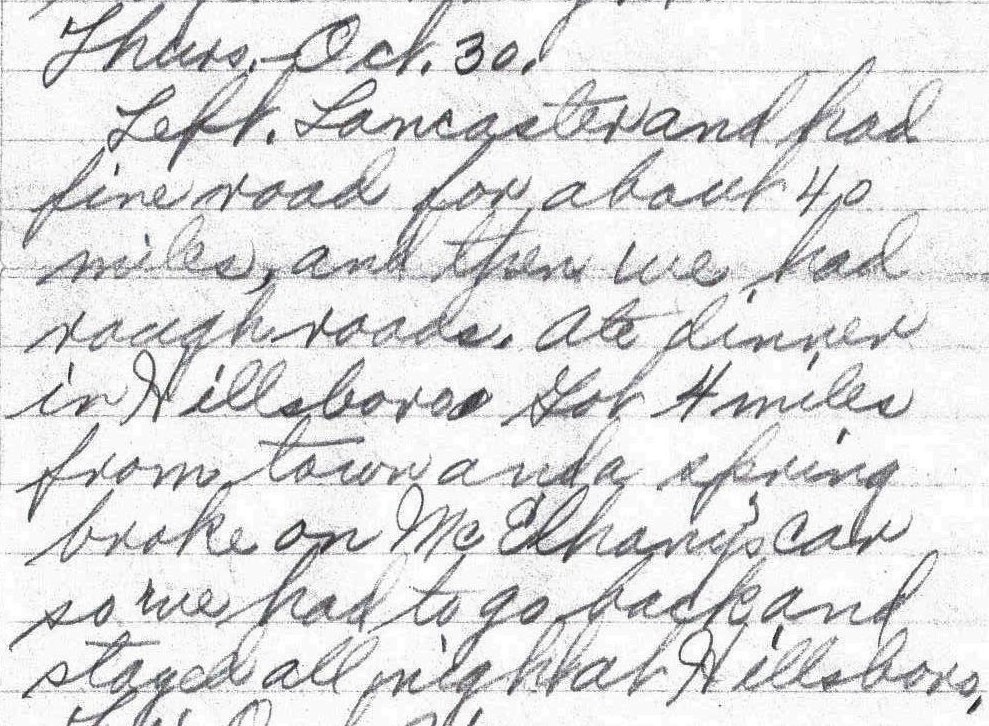 Thurs. Oct. 30.
Left. Lancaster and had
fine road for about 40
miles, and then we had
rough roads. Ate dinner
in Hillsboro. Got 4 miles
from town and a spring
broke on McElhany's car
so we had to go back and
stayed all night at Hillsboro,